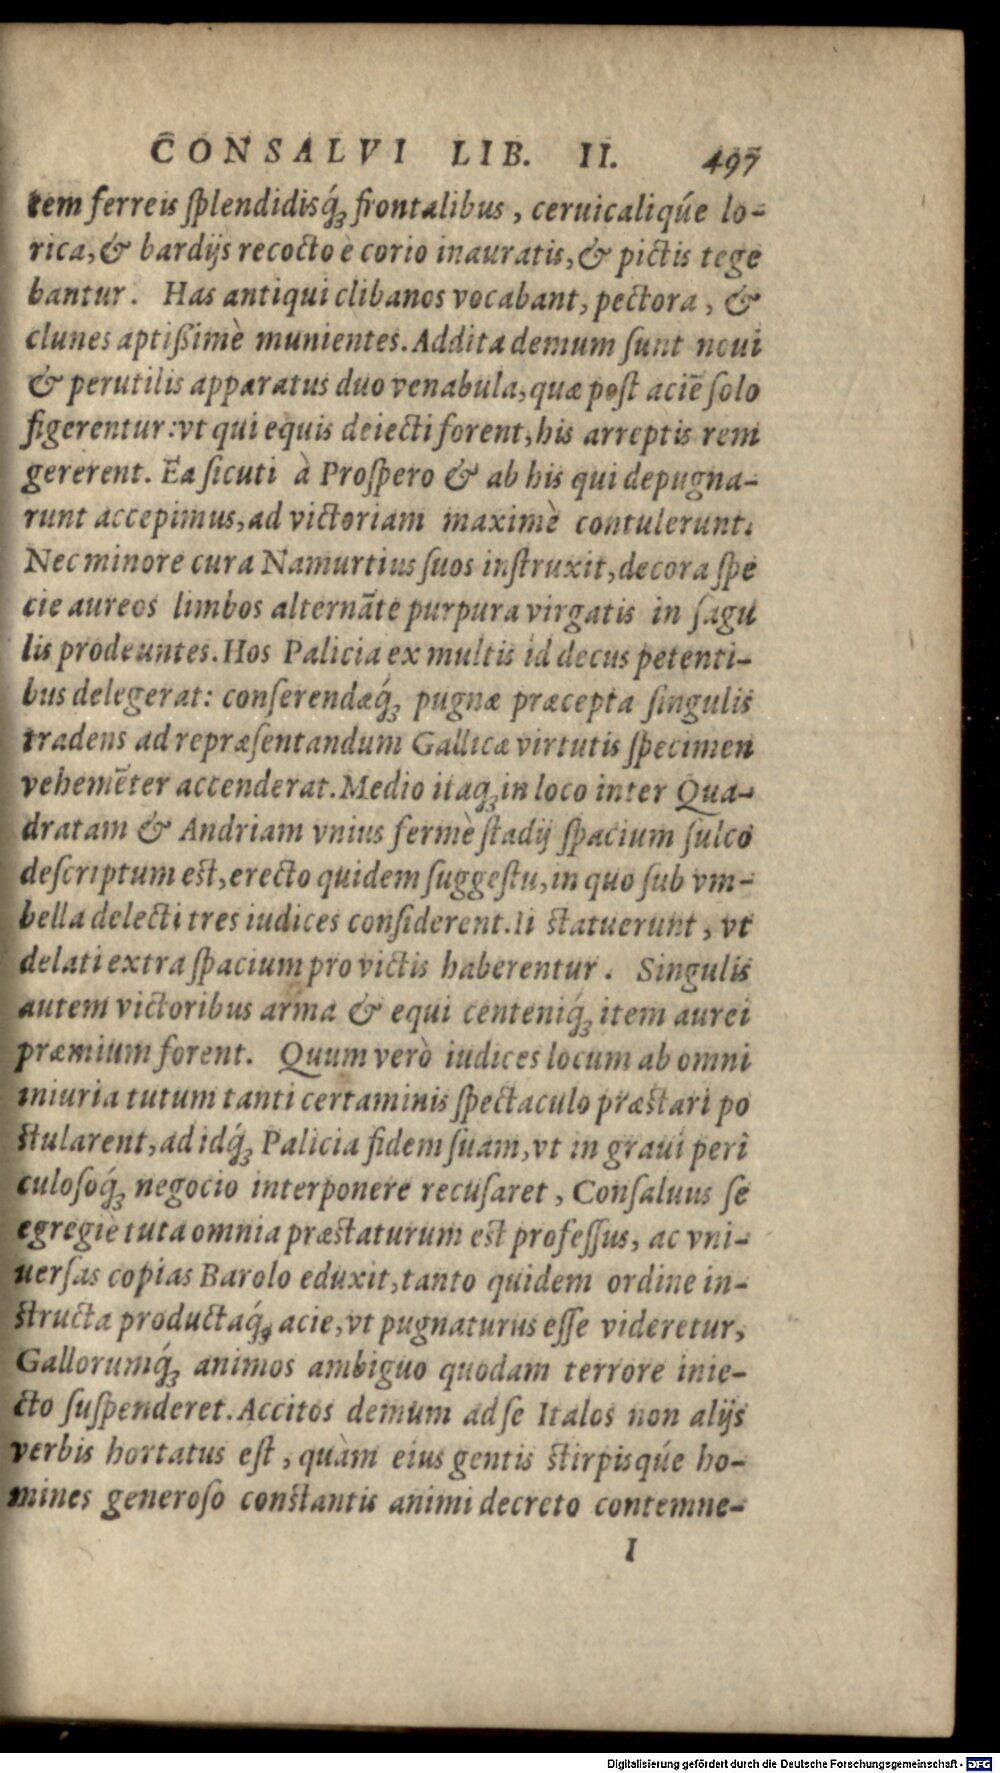 CONSALVI LIB. II. 497
tem ferreis ſplendidisq́; frontalibus, ceruicaliqúe lo-
rica, & bardijs recocto è corio inauratis, & pictis tege
bantur. Has antiqui clibanos vocabant, pectora, &
clunes aptißimè munientes. Addita demum ſunt noui
& perutilis apparatus duo venabula, quæ poſt aciẽ ſolo
figerentur: vt qui equis deiecti forent, his arreptis rem
gererent. Ea ſicuti à Proſpero & ab his qui depugna-
runt accepimus, ad victoriam maximè contulerunt.
Nec minore cura Namurtius ſuos inſtruxit, decora ſpe
cie aureos limbos alternãte purpura virgatis in ſagu
lis prodeuntes. Hos Palicia ex multis id decus petenti-
bus delegerat: conſerendæq́; pugnæ præcepta ſingulis
tradens ad repræſentandum Gallicæ virtutis ſpecimen
vehemẽter accenderat. Medio itaq; in loco inter Qua-
dratam & Andriam vnius fermè ſtadij ſpacium ſulco
deſcriptum eſt, erecto quidem ſuggeſtu, in quo ſub vm-
bella delecti tres iudices conſiderent. Ii ſtatuerunt, vt
delati extra ſpacium pro victis haberentur. Singulis
autem victoribus arma & equi centeniq́; item aurei
præmium forent. Quum verò iudices locum ab omni
iniuria tutum tanti certaminis ſpectaculo præſtari po
ſtularent, ad idq́; Palicia fidem ſuam, vt in graui peri
culoſoq́; negocio interponere recuſaret, Conſaluus ſe
egregiè tuta omnia præſtaturum eſt profeſſus, ac vni-
uerſas copias Barolo eduxit, tanto quidem ordine in-
ſtructa productaq́; acie, vt pugnaturus eſſe videretur,
Gallorumq́; animos ambiguo quodam terrore inie-
cto ſuſpenderet. Accitos demum ad ſe Italos non alijs
verbis hortatus eſt, quàm eius gentis ſtirpisqúe ho-
mines generoſo conſtantis animi decreto contemne-
I
Digitalisierung gefördert durch die Deutsche Forschungsgemeinschaft - DFG